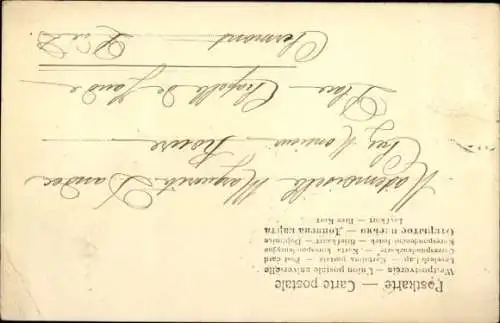 Postkarte — Carte postale
Weltpostverein — Union postale universelle
Levelező-Lap. — Karta pocztowa — Post card
Correspondenzkarte — Karta — korespondencyjna
Korespondenční lístek — Briefkaart — Dopisnice
Открытое письмо — Дописна карта
Brefkort — Brev Kort
Mademoiselle Marguerite
Chez Monsieur
Place Chapelle de Jaude
Clermont
P. de D.